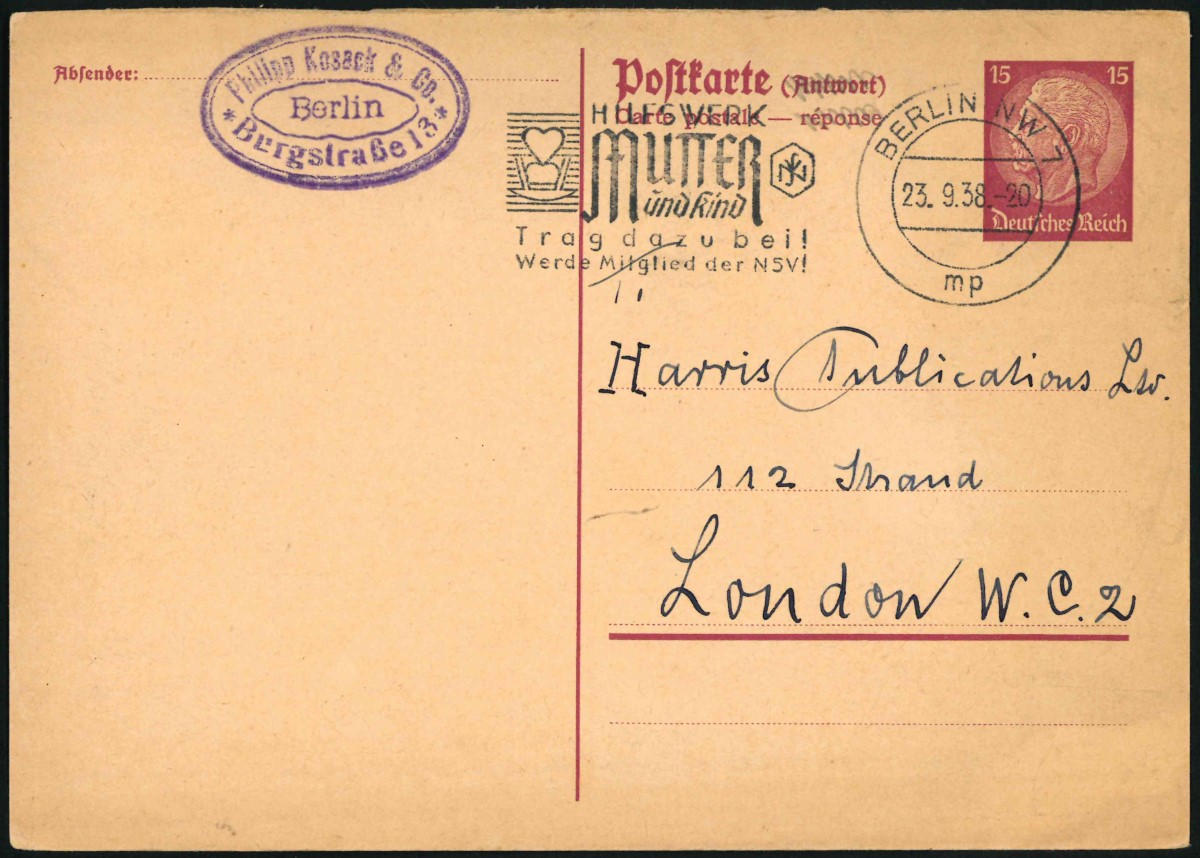 Absender:
Philipp Kosack & Co.
Berlin
* Burgstraße 13 *
Postkarte (Antwort)
Carte postale — réponse
HILFSWERK
MUTTER
und Kind
Trag dazu bei!
Werde Mitglied der NSV!
BERLIN NW 7
23. 9.38.-20
mp
15 15
Deutsches Reich
Harris Publications Ltd.
112 Strand
London W.C.2